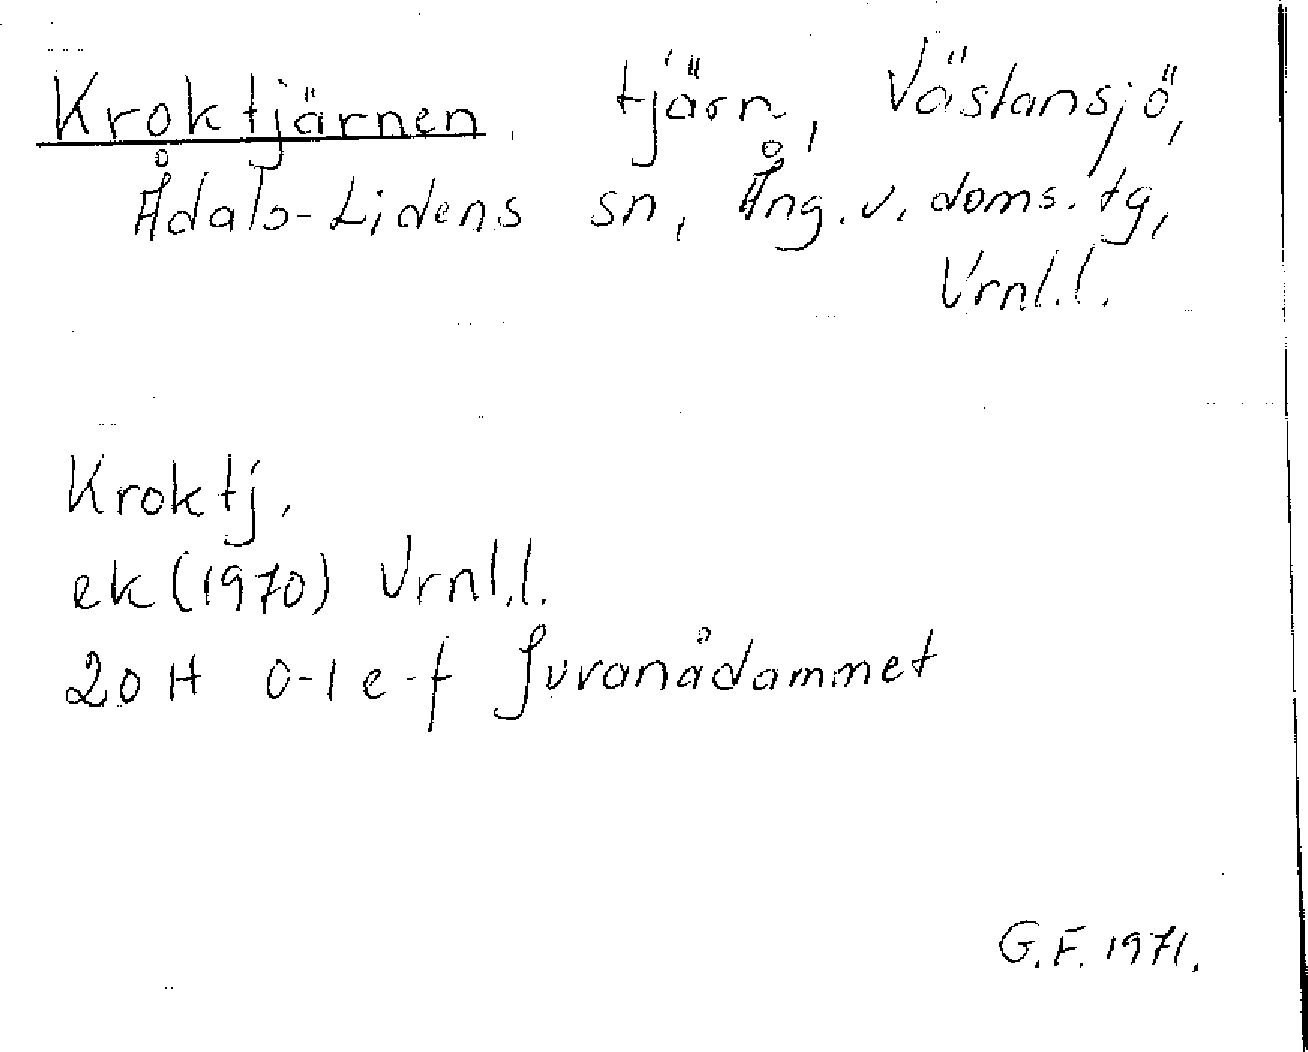 Kroktjärnen, tjärn, Västansjö,
Ådals-Lidens sn, Ång.v.doms.tg,
Vrnl.l.
Kroktj.
ek (1970) Vrnl.l.
20 H 0-1 e-f Juvanådammet
G.F. 1971.